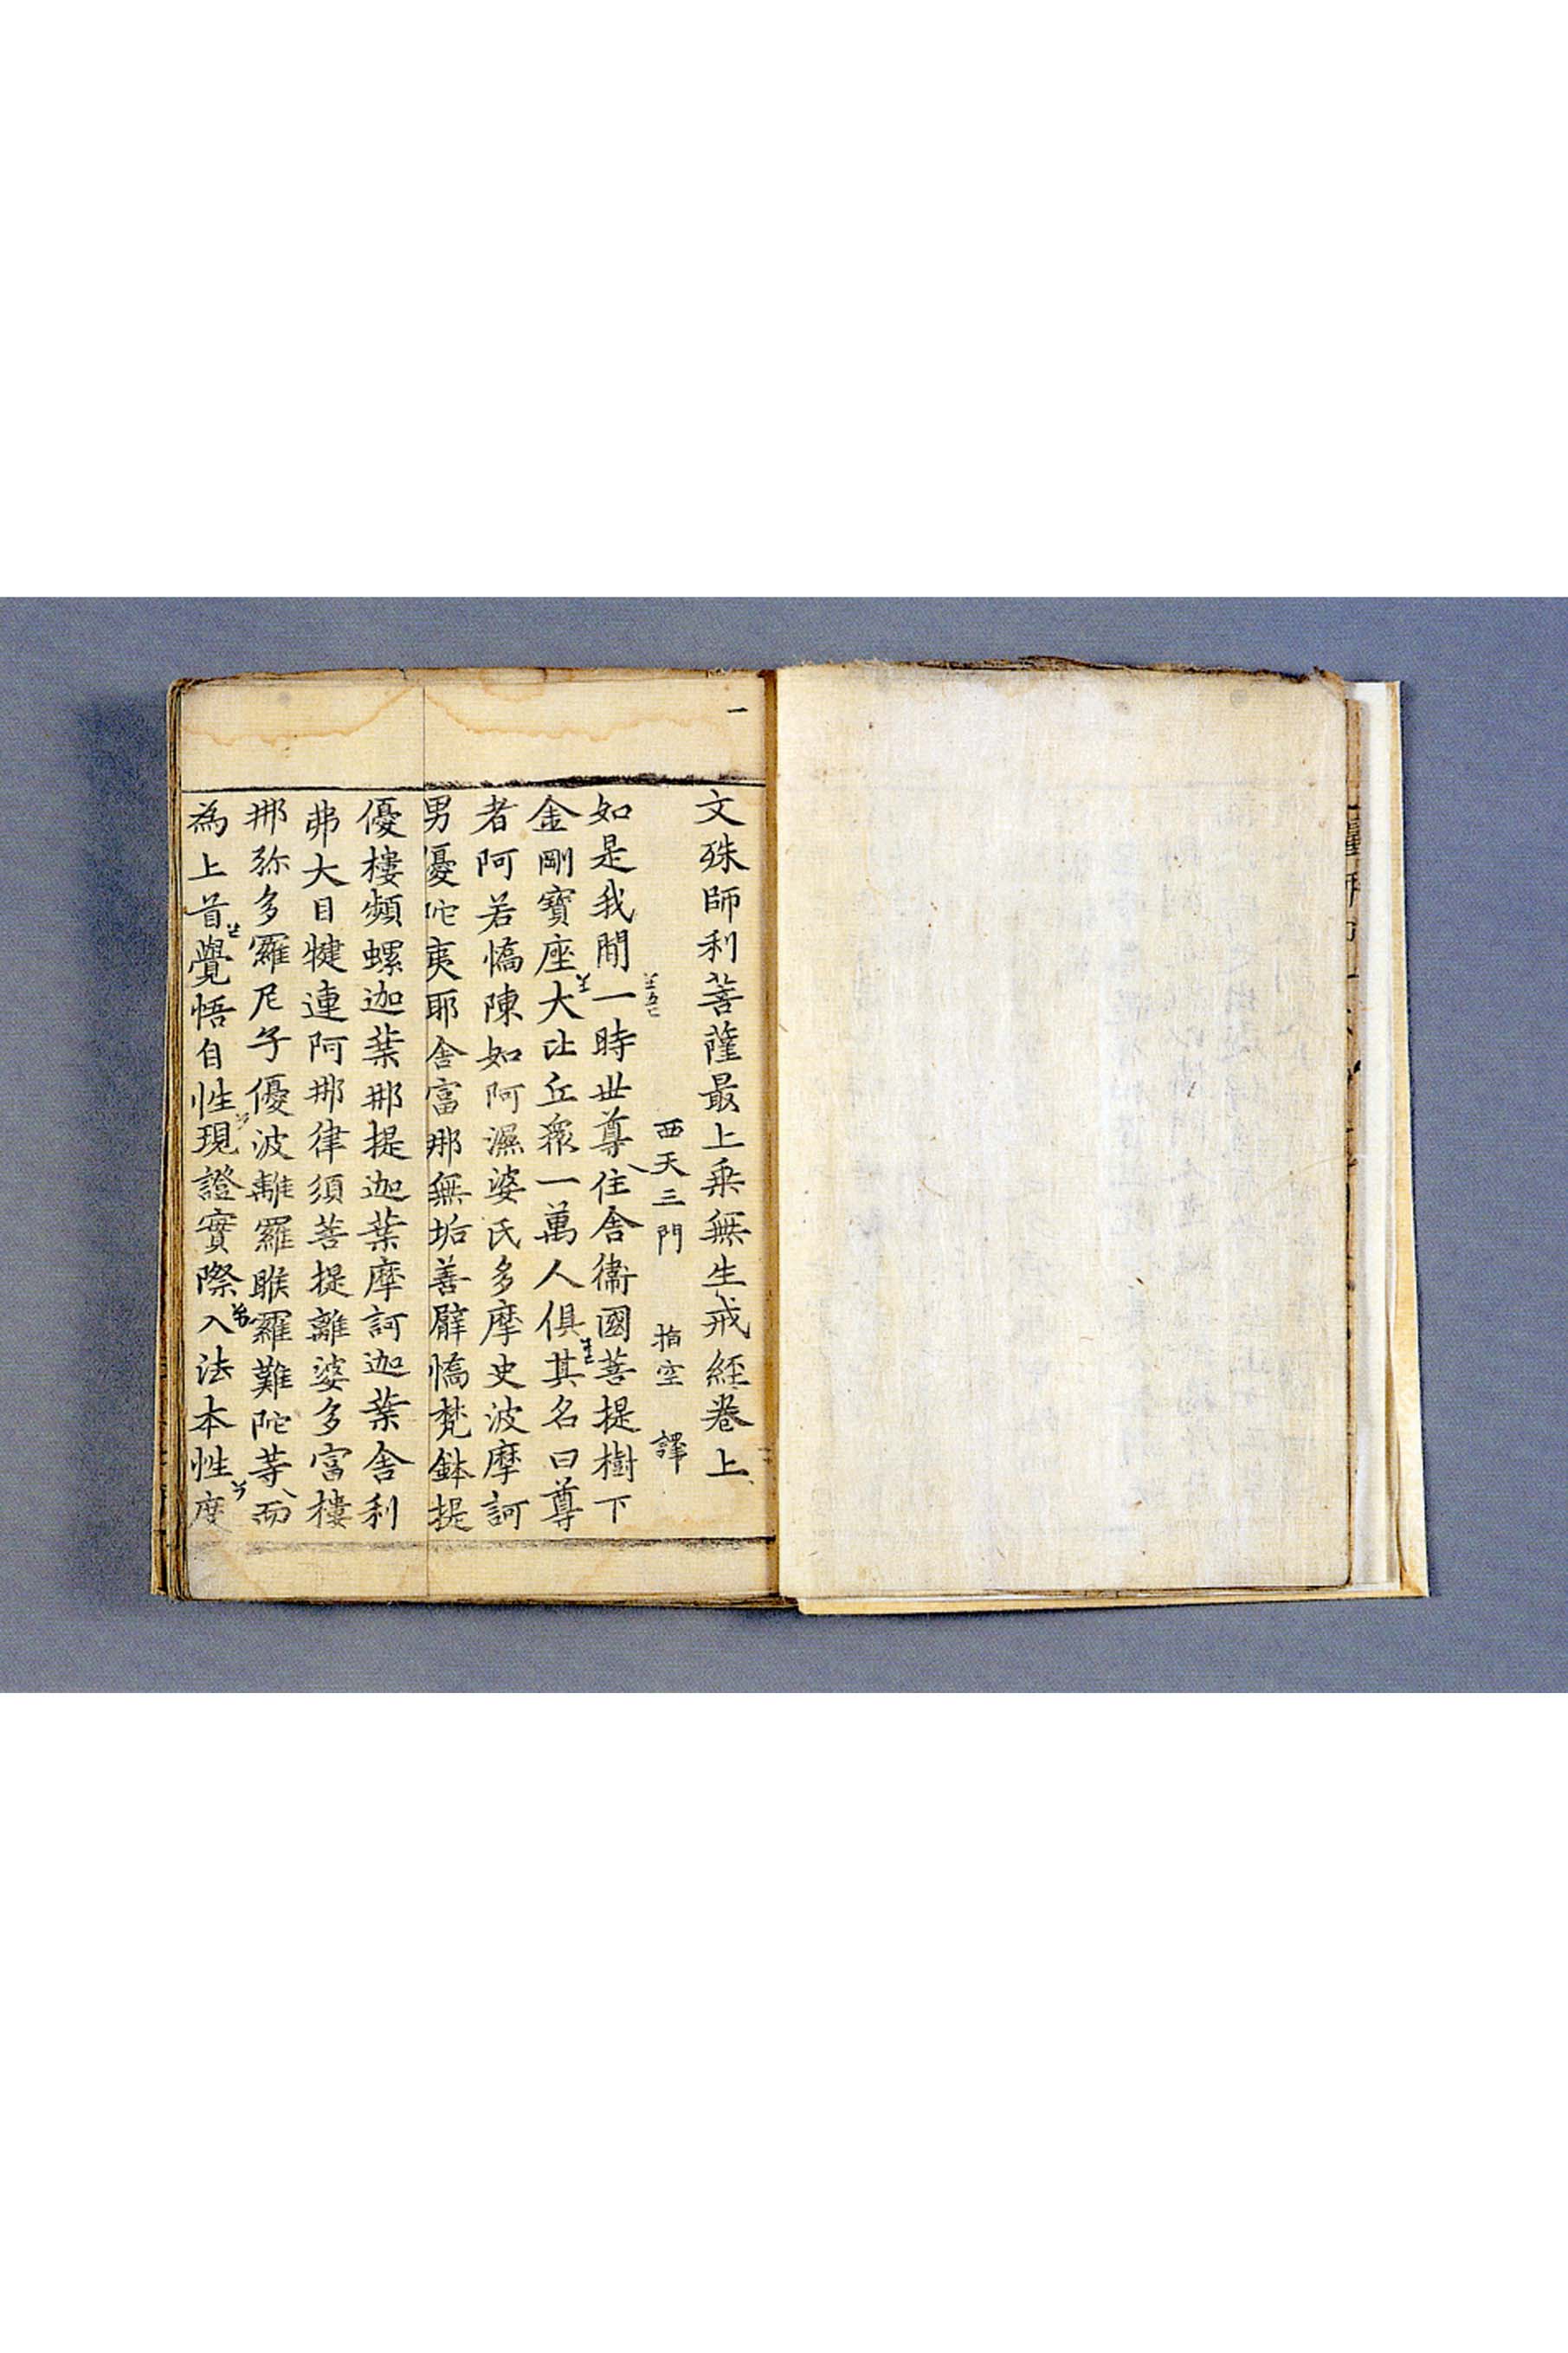 一
文殊師利菩薩最上乗無生戒経巻上
西天三門 指空 譯
如是我聞一時世尊住舎衛國菩提樹下
金剛寶座大比丘衆一萬人俱其名曰尊
者阿若憍陳如阿濕婆氏多摩史波摩訶
男優陀夷耶舎富那無垢善臂憍梵鉢提
優樓頻螺迦葉那提迦葉摩訶迦葉舎利
弗大目犍連阿那律須菩提離婆多富樓
那弥多羅尼子優波離羅睺羅難陀等而
為上首覺悟自性現證實際入法本性度